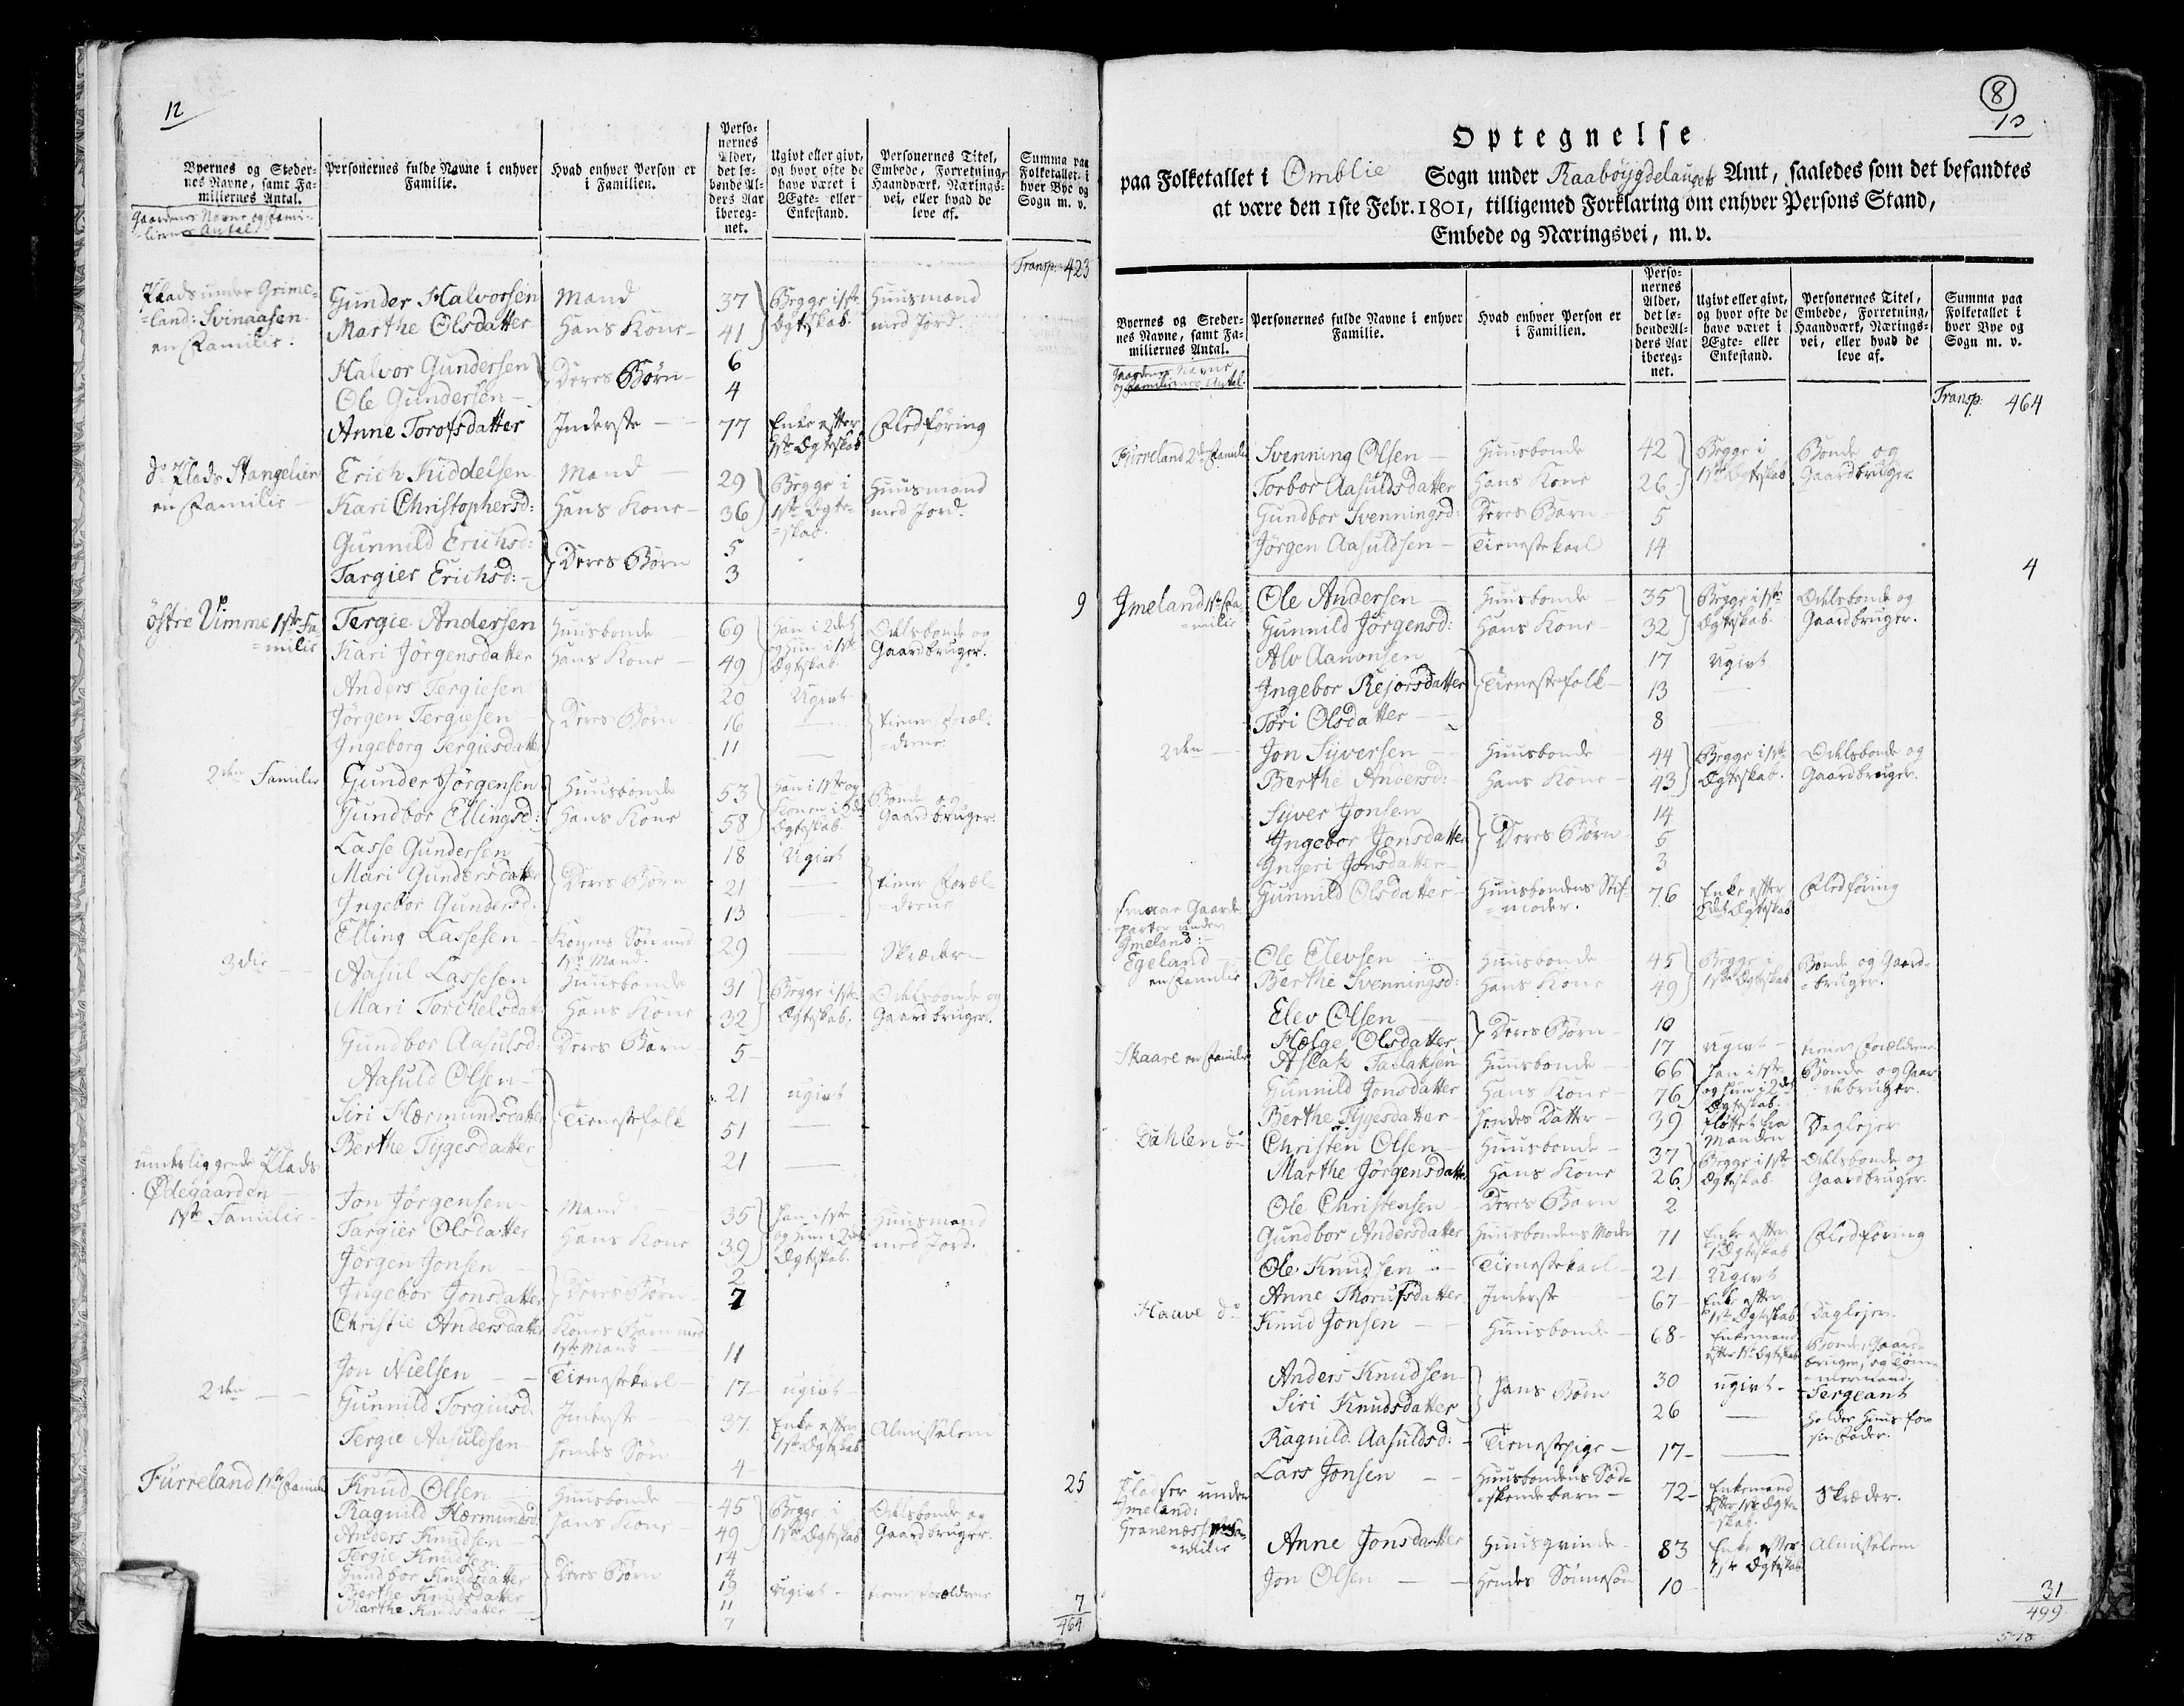 12
Byernes og Steder-
nes Navne, samt Fa-
miliernes Antal.
Gaardenes Navne og Fami-
-liernes Antal
Personernes fulde Navne i enhver
Familie.
Hvad enhver Person er
i Familien.
Perso-
nernes
Alder,
det lø-
bende Al-
ders Aar
ibereg-
net.
Ugivt eller givt,
og hvor ofte de
have været i
Ægte- eller
Enkestand.
Personernes Titel,
Embede, Forretning,
Haandværk, Nærings-
vei, eller hvad de
leve af.
Summa paa
Folketallet i
hver Bye og
Sogn m. v.
Transp: 423
Plads under Grime-
-land: Svinaasen
en Familie:
Gunder Halvorsen Mand 37 Begge i 1ste Huusmand
Marthe Olsdatter Hans Kone 41 Ægteskab med Jord.
Halvor Gundersen Deres Børn 6
Ole Gundersen 4
Anne Torofsdatter Inderste 77 Enke efter Fledføring
1ste Ægteskab
do Plads Stangelien Erich Kiddelsen Mand 29 Begge i Huusmand
en Familie Kari Christophersd: Hans Kone 36 1ste Ægte- med Jord.
-skab.
Gunnild Erichsd: Deres Børn 5
Targier Erichsd: 3
9
østre Vimme 1ste Fa- Tergie Andersen Huusbonde 69 Han i 2det Odelsbonde og
-milie Kari Jörgensdatter Hans Kone 49 og hun i 1ste Gaardbruger.
Ægteskab
Anders Tergiesen 20 Ugivt
Jörgen Tergiesen Deres Børn 16 tiener Foræl-
Ingeborg Tergiesdatter 11 -drene
2den Familie Gunder Jörgensen Huusbonde 53 Han i 1ste og Bonde og
Gundbor Ellingsd: Hans Kone 58 Konen i 2det Gaardbruger.
Ægteskab.
Lasse Gundersen 18 Ugivt
Mari Gundersdatter Deres Børn 21 tiener Foræl-
Ingebor Gundersd. 13 -drene
Elling Lassesen Konens Søn med 29 Skræder
1ste Mand.
3die Aasul Lassesen Huusbonde 31 Begge i 1ste Odelsbonde og
Mari Torchelsdatter Hans Kone 32 Ægteskab. Gaardbruger.
Gundbor Aasulsd: Deres Barn 5
Aasuld Olsen 21 ugivt
Siri Hærmundsdatter Tienestefolk 51
Berthe Tygesdatter 21
underliggende Plads
Ødegaarden
1ste Familie
Jon Jörgensen Mand 35 Han i 1ste Huusmand
Targier Olsdatter Hans Kone 39 og hun i 2det med Jord.
Ægteskab.
Jörgen Jonsen 2
Ingebor Jonsdatter Deres Børn 7
Christie Andersdatter Kones Barn med
1ste Mand 11
Jon Nielsen Tienestekarl 17 ugivt
2den Gunnild Torgiusd. Inderste 37 Enke efter Almisselem
1ste Ægteskab
Tergie Aasuldsen hendes Søn 4
25
Furreland 1ste Familie Knud Olsen Huusbonde 45 Begge i Odelsbonde og
Ragnild Hærmundsd. Hans Kone 49 1ste Ægteskab Gaardbruger.
Anders Knudsen 14
Tergie Knudsen 4
Gundbor Knudsdatter Deres Børn 19 Ugivt tiener Forældrene
Berthe Knudsdatter 11
Marthe Knudsdatter 7
7
464
8
13
Optegnelse
paa Folketallet i Omblie Sogn under Raabøygdelaugets Amt, saaledes som det befandtes
at være den 1ste Febr. 1801, tilligemed Forklaring om enhver Persons Stand,
Embede og Næringsvei, m. v.
Byernes og Steder-
nes Navne, samt Fa-
miliernes Antal.
Gaardenes Navne
og Familiernes Antal.
Personernes fulde Navne i enhver
Familie.
Hvad enhver Person er
i Familien.
Perso-
nernes
Alder,
det lø-
bende Al-
ders Aar
ibereg-
net.
Ugivt eller givt,
og hvor ofte de
have været i
Ægte- eller
Enkestand.
Personernes Titel,
Embede, Forretning,
Haandværk, Nærings-
vei, eller hvad de
leve af.
Summa paa
Folketallet i
hver Bye og
Sogn m. v.
Transp: 464
Furreland 2den Familie Svenning Olsen Huusbonde 42 Begge i Bonde og
Torbor Aasuldsdatter Hans Kone 26 1ste Ægteskab Gaardbruger.
Gundbor Svenningsd: Deres Barn 5
Jörgen Aasuldsen Tienestekarl 14
4
Imeland 1ste Fa- Ole Andersen Huusbonde 35 Begge i 1ste Odelsbonde og
-milie Gunnild Jörgensd: Hans Kone 32 Ægteskab. Gaardbruger.
Alv Aanonsen 17 Ugivt
Ingebor Rejorsdatter Tienestefolk 13
Tori Olsdatter 8
2den Jon Syversen Huusbonde 44 Begge i 1ste Odelsbonde og
Berthe Andersd: Hans Kone 43 Ægteskab. Gaardbruger.
Syver Jonsen 14
Ingebor Jonsdatter Deres Børn 5
Ingeri Jonsdatter 3
Gunnild Olsdatter Huusbondens Stif- 76 Enke efter Fledføring
-moder. 2det Ægteskab
smaae Gaarde
parter under
Imeland:
Egeland Ole Elevsen Huusbonde 45 Begge i Bonde og Gaard-
en Familie Berthe Svenningsd: Hans Kone 49 1ste Ægteskab -bruger.
Elev Olsen Deres Børn 10
Hælge Olsdatter 17 ugivt tiener Forældrene
Skaare en Familie Aslak Taalaksen Huusbonde 66 Han i 1ste Bonde og Gaar-
Gunnild Jonsdatter Hans Kone 76 og hun i 2det -dbruger.
Ægteskab.
Berthe Tygesdatter hendes Datter 39 fløttet fra Daglejer
Manden
Dahlen do Christen Olsen Huusbonde 37 Begge i 1ste Odelsbonde og
Marthe Jörgensdatter Hans Kone 26 Ægteskab. Gaardbruger.
Ole Christensen Deres Barn 2
Gundbor Andersdatter Huusbondens Moder 71 Enke efter Fledføring
1 Ægteskab
Ole Knudsen Tienestekarl 21 Ugivt
Anne Thorufsdatter Inderste 67 Enke efter Daglejer
1ste Ægteskab
Haave do Knud Jonsen Huusbonde 68 Enkemand Bonde, Gaard-
efter 1ste Ægteskab bruger, og Tøm-
-mermand.
Anders Knudsen Hans Børn 30 ugivt Sergeant
Siri Knudsdatter 26 holder Huus for
sin Fader.
Ragnild Aasuldsd: Tienestepige 17
Lars Jonsen Huusbondens Sød- 72 Enkemand Skræder.
-skendebarn efter 1ste Ægte-
-skab.
Pladser under
Imeland:
Granenæs 1ste Fa-
-milie
Anne Jonsdatter Huusqvinde 83 Enke efter Almisselem
1ste Ægteskab
Jon Olsen Hendes Sönnesön 10
31
499